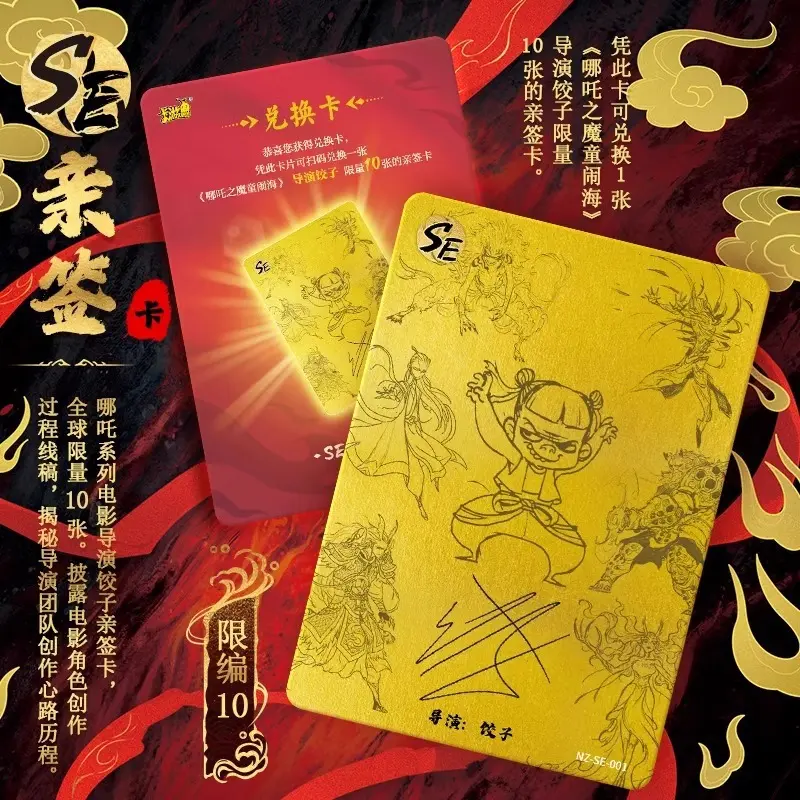 SE
亲签
卡
凭此卡可兑换1张
《哪吒之魔童闹海》
导演饺子限量
10张的亲签卡。
卡游
兑换卡
恭喜您获得兑换卡,
凭此卡片可扫码兑换一张
《哪吒之魔童闹海》 导演饺子 限量10张的亲签卡
SE
·SE
SE
导演:饺子
NZ-SE-001
哪吒系列电影导演饺子亲签卡,
全球限量10张。披露电影角色创作
过程线稿,揭秘导演团队创作心路历程。
限编
10